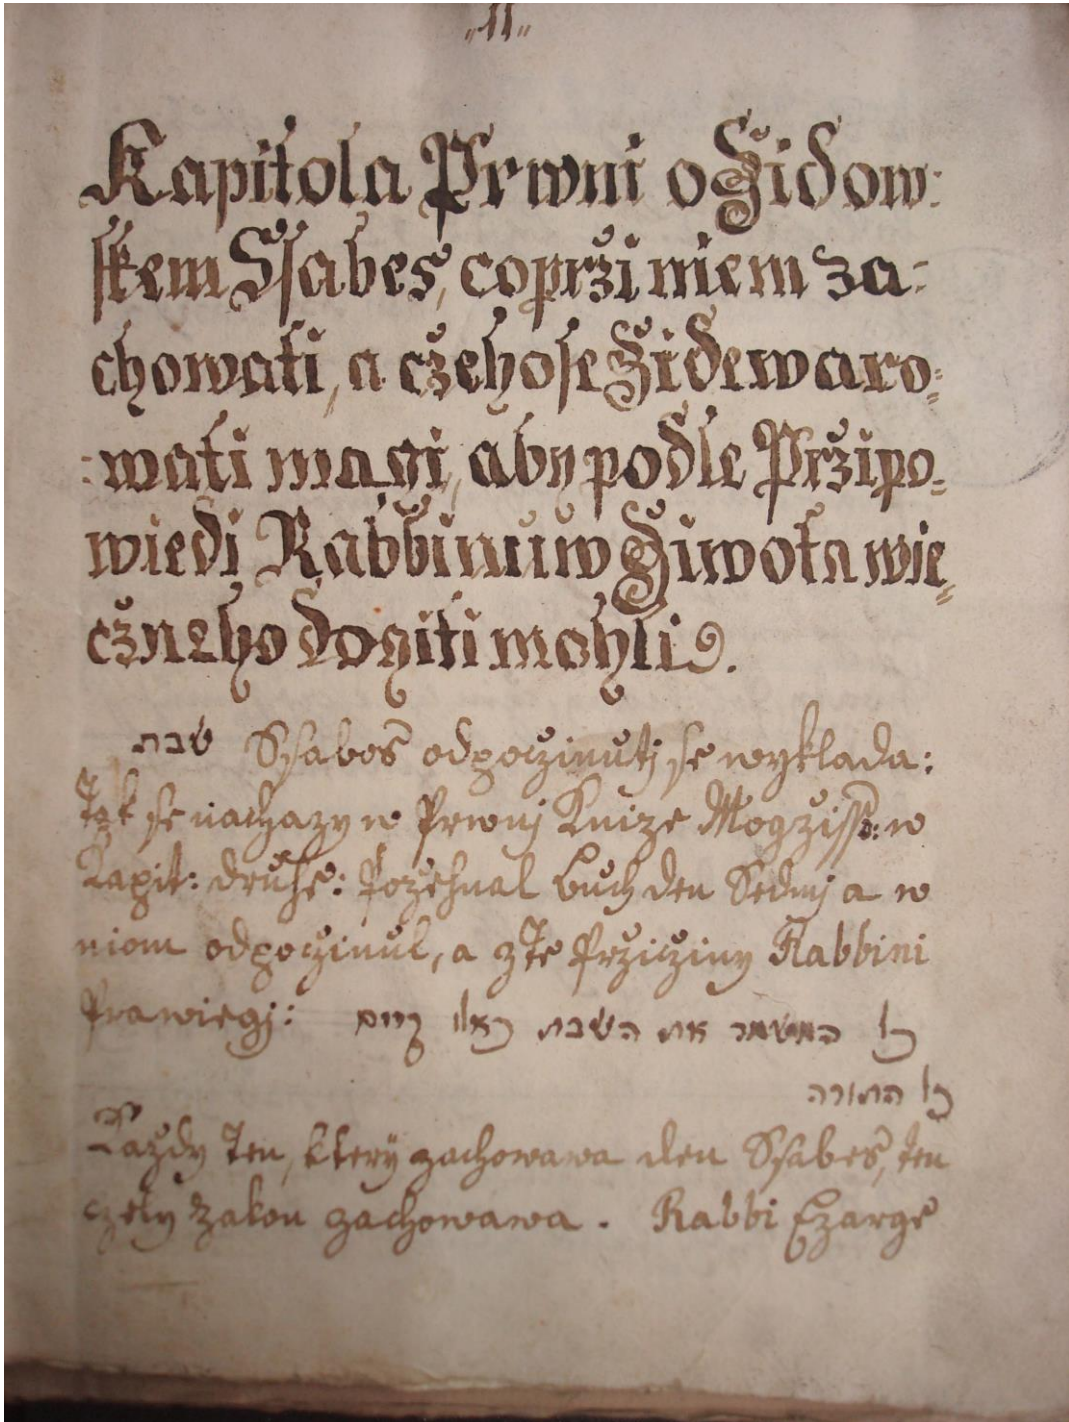 „11„
Kapitola Prwni o Židow:
skem Ssabes, co przi niem za:
chowati, a czeho se Židé waro:
:wati magi, aby podle Przipo:
wiedi Rabbinuw Žiwota wie:
czneho dogiti mohli.
שבת Ssabos odpoczinutj se wyklada:
Tak se nachazy w Prwnj Knize Mogzisso: w
Kapit: druhe: Požehnal Buch den Sedmj a w
niom odpoczinul, a z Te Przicziny Rabbini
Prawiegj: כל המשמר את השבת כאלו קיים
כל התורה
Každy Ten, ktery zachowawa den Ssabes, ten
czely Zakon zachowawa. Rabbi Ezarge